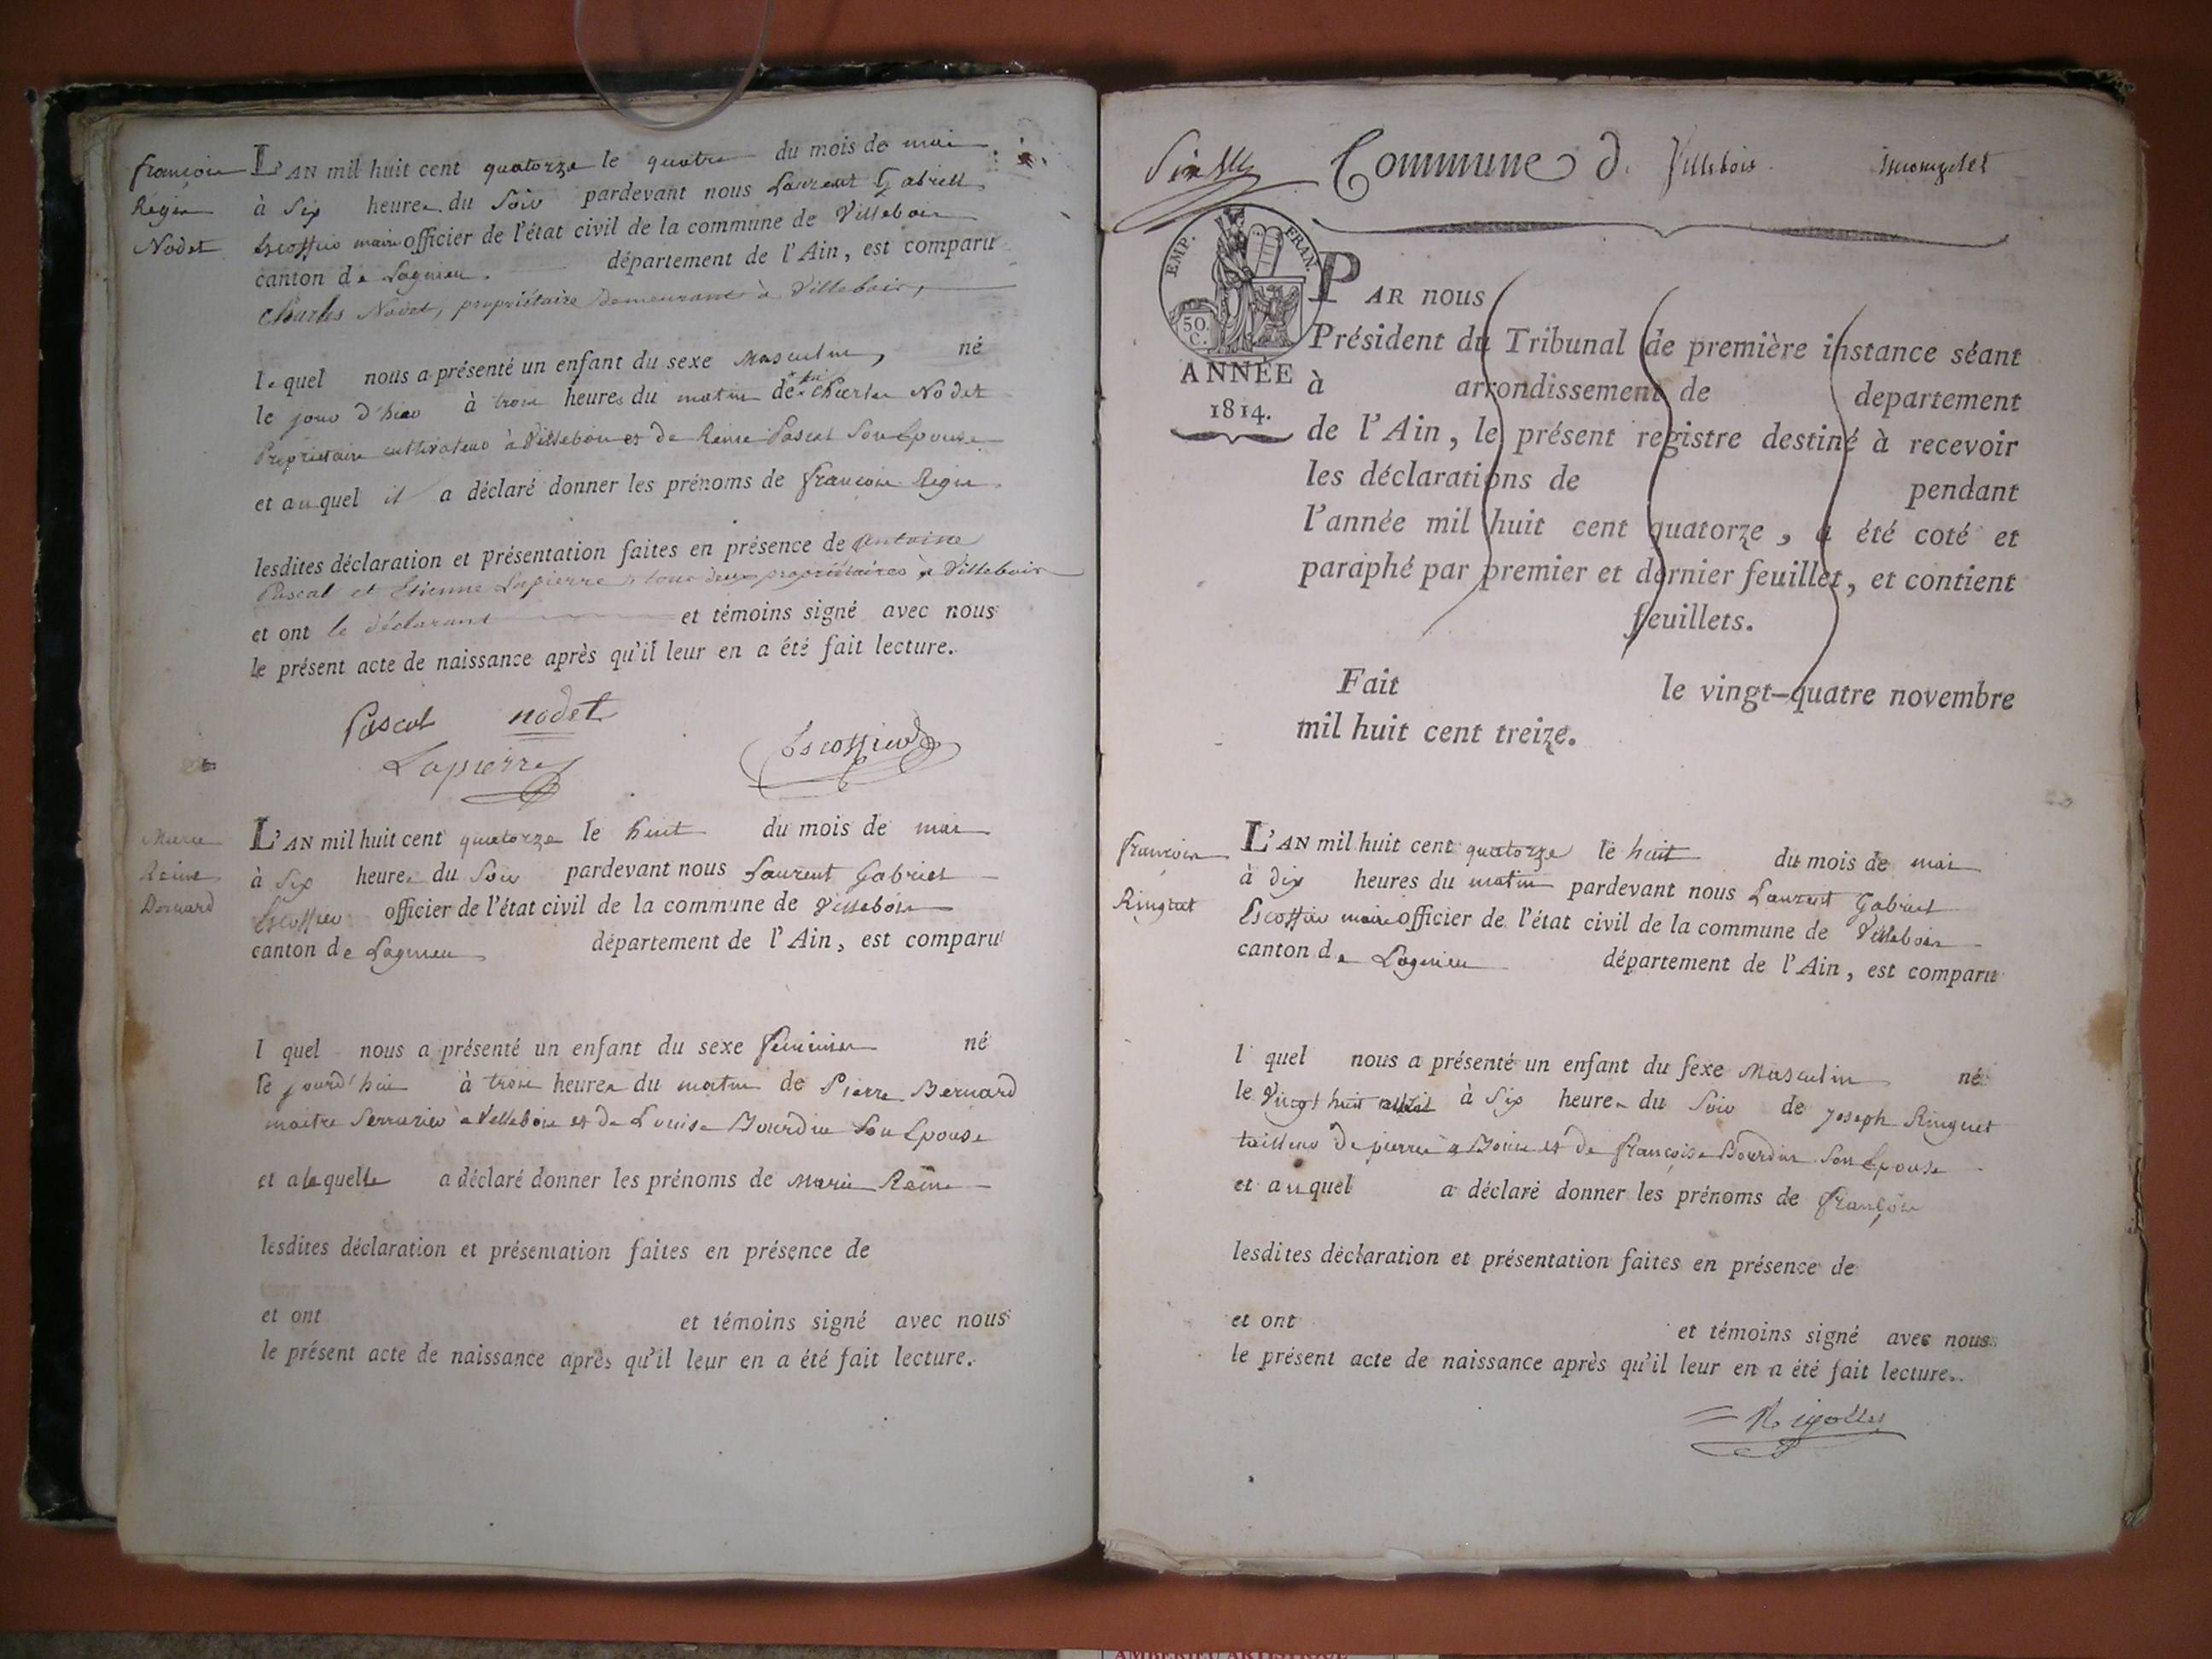 françois
Régis
Nodet
L'AN mil huit cent quatorze le quatre du mois de mai
à Six heures du Soir pardevant nous Laurent Gabriel
Escoffier maire officier de l'état civil de la commune de Villebois
canton de Lagnieu. département de l'Ain, est comparu
Charles Nodet, propriétaire demeurant à Villebois,
lequel nous a présenté un enfant du sexe Masculin, né
le jour d'hier à trois heures du matin de Charles Nodet
Propriétaire cultivateur à Villebois et de Reine Pascal Son Epouse
et auquel il a déclaré donner les prénoms de françois Régis
lesdites déclaration et présentation faites en présence de Antoine
Pascal et Etienne Lapierre tous deux propriétaires à Villebois
et ont le déclarant et témoins signé avec nous
le présent acte de naissance après qu'il leur en a été fait lecture.
Pascal nodet
Lapierre Escoffier
Marie
Reine
Bernard
L'AN mil huit cent quatorze le huit du mois de mai
à Six heures du Soir pardevant nous Laurent Gabriel
Escoffier officier de l'état civil de la commune de Villebois
canton de Lagnieu département de l'Ain, est comparu
l quel nous a présenté un enfant du sexe féminin né
le jourd'hui à trois heures du matin de Pierre Bernard
maitre Serrurier à Villebois et de Louise Bourdin Son Epouse
et a laquelle a déclaré donner les prénoms de Marie Reine
lesdites déclaration et présentation faites en présence de
et ont et témoins signé avec nous
le présent acte de naissance après qu'il leur en a été fait lecture.
Commune d. Villebois incomplet
EMP. FRAN.
50.
C.
ANNÉE
1814.
PAR nous
Président du Tribunal de première instance séant
à arrondissement de departement
de l'Ain, le présent registre destiné à recevoir
les déclarations de pendant
l'année mil huit cent quatorze, a été coté et
paraphé par premier et dernier feuillet, et contient
feuillets.
Fait le vingt-quatre novembre
mil huit cent treize.
françois
Ringuet
L'AN mil huit cent quatorze le huit du mois de mai
à dix heures du matin pardevant nous Laurent Gabriel
Escoffier maire officier de l'état civil de la commune de Villebois
canton de Lagnieu département de l'Ain, est comparu
l quel nous a présenté un enfant du sexe Masculin né
le Vingt huit avril à Six heures du Soir de Joseph Ringuet
tailleur de pierre à et de françoise Bourdin Son Epouse
et auquel a déclaré donner les prénoms de françois
lesdites déclaration et présentation faites en présence de
et ont et témoins signé avec nous
le présent acte de naissance après qu'il leur en a été fait lecture.